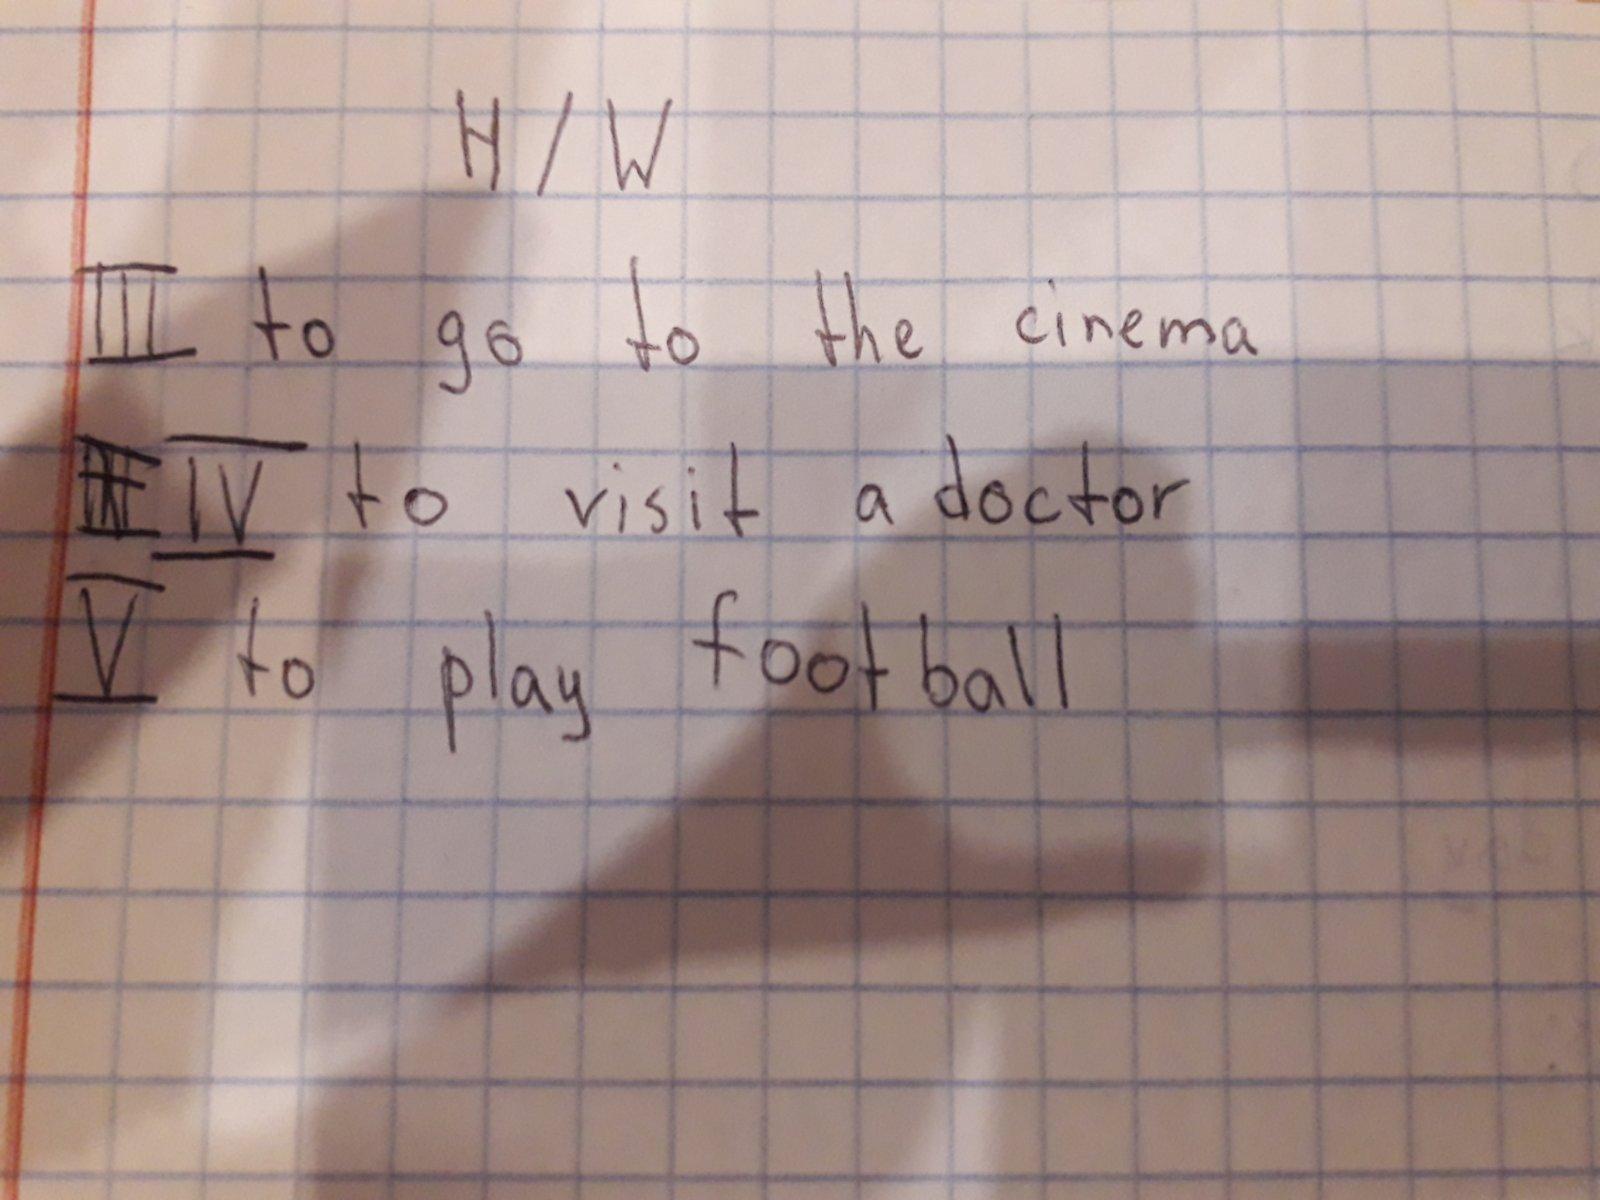 H/W
III to go to the cinema
IV to visit a doctor
V to play football